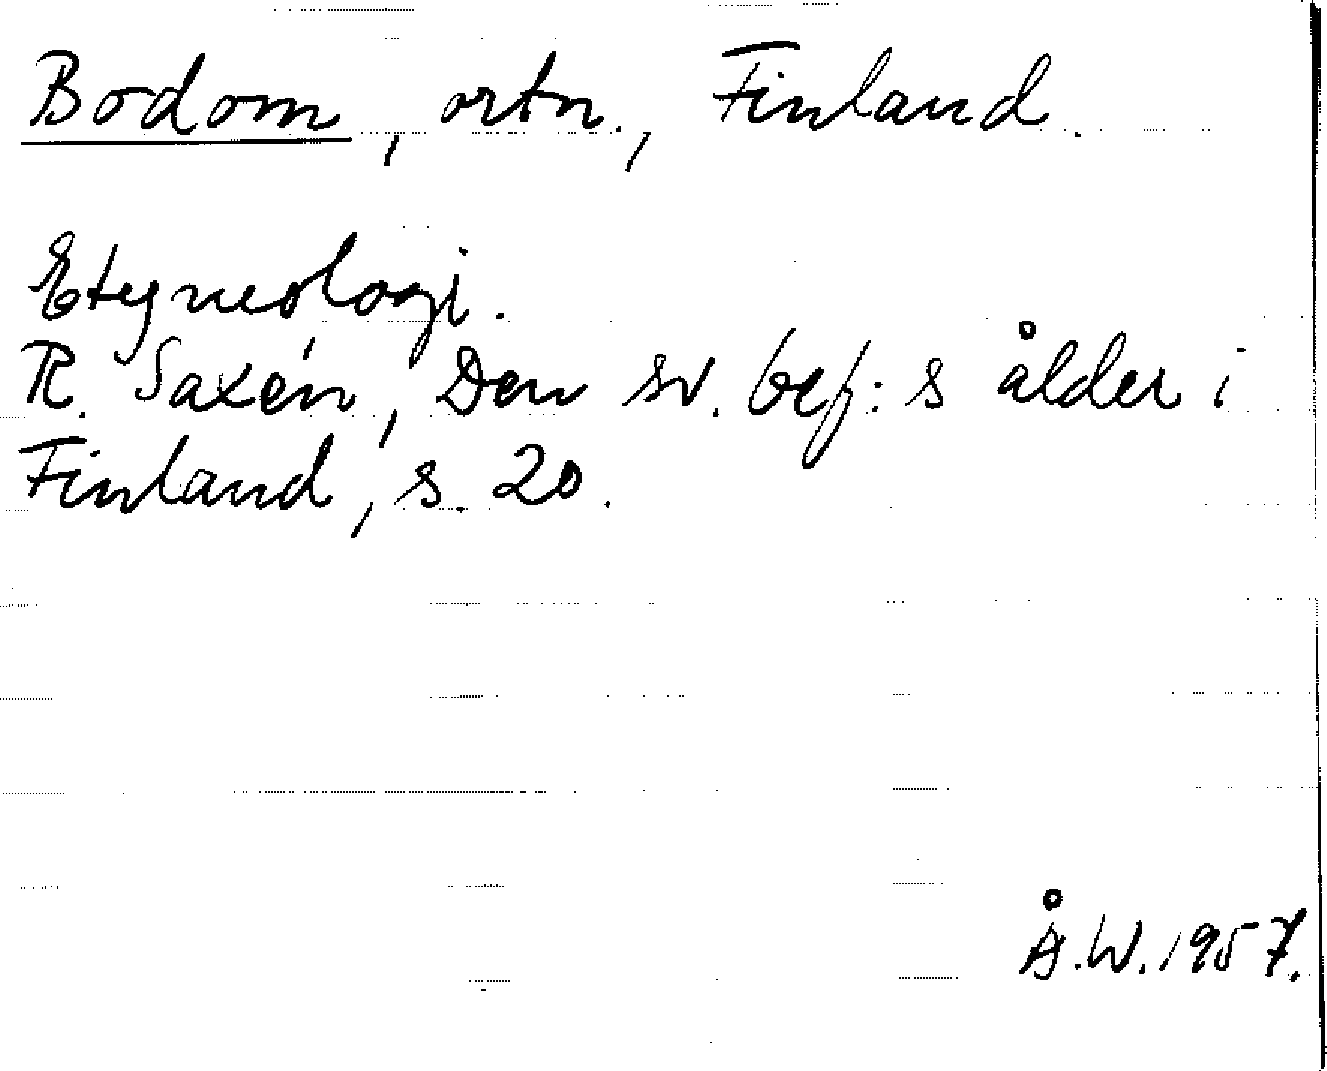 Bodom, ortn., Finland.
Etymologi.
R. Saxén, Den sv. bef:s ålder i
Finland, s. 20.
Å.W. 1957.